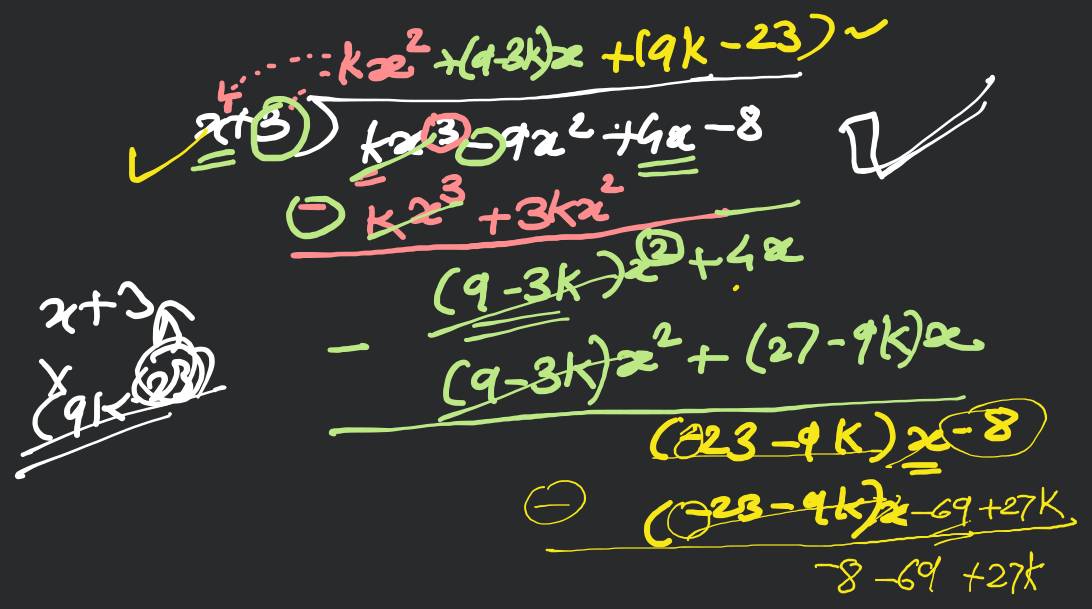 kx² +(9-3k)x +(9k-23)
x+3) kx³ -9x² +4x -8
- kx³ +3kx²
(9-3k)x² +4x
- (9-3k)x² + (27-9k)x
x+3
x
(9k 23)
(-23 -9k)x -8
- (-23 -9k)x -69 +27k
-8 -69 +27k